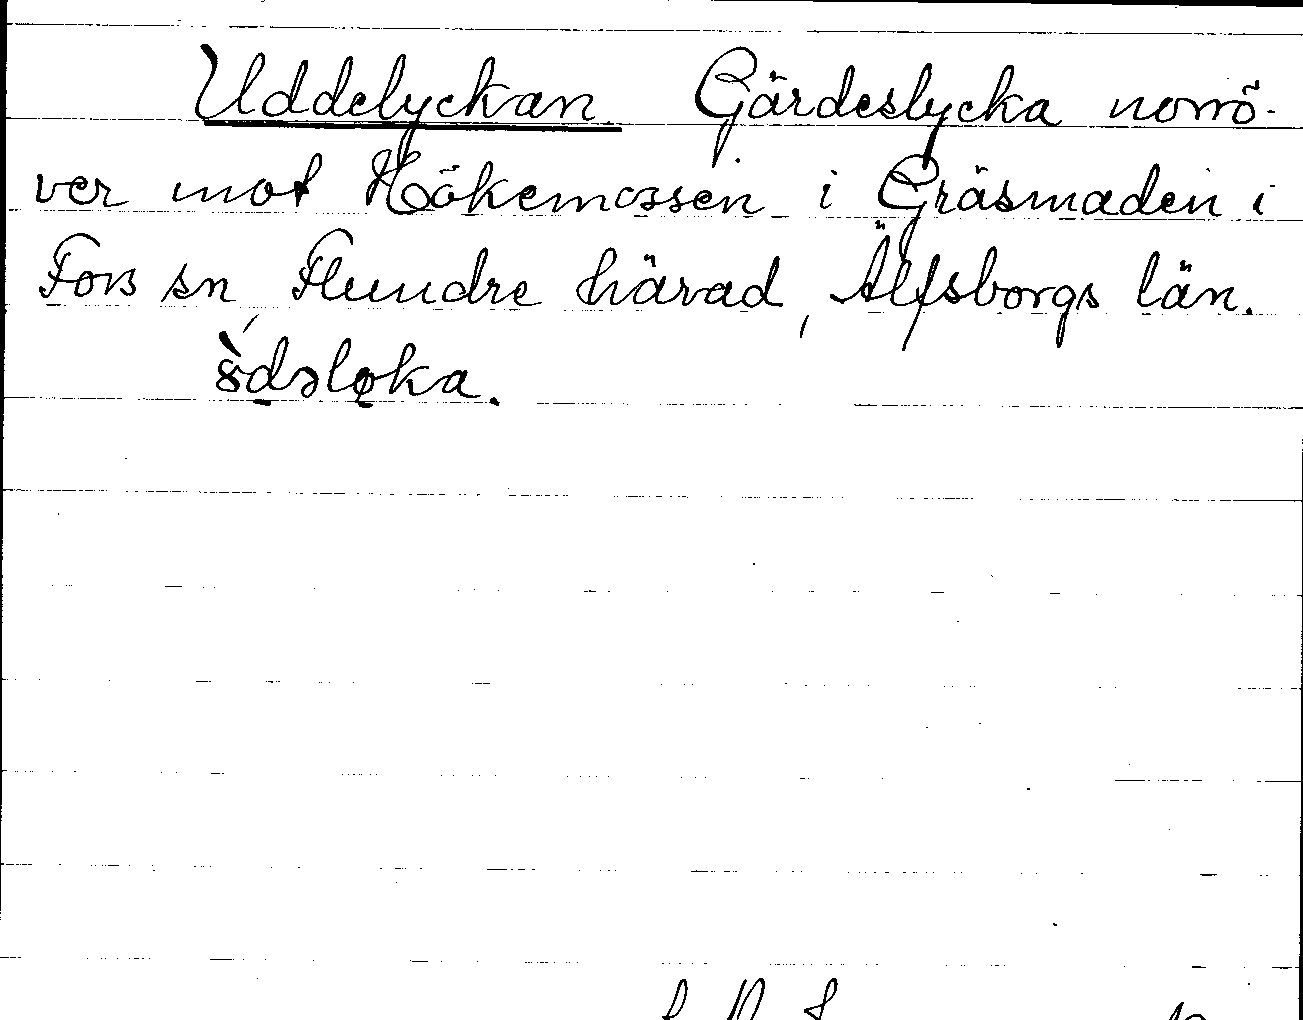 Uddelyckan Gärdeslycka norrö-
ver mot Hökemossen i Gräsmaden i
Fors sn, Flundre härad, Älfsborgs län.